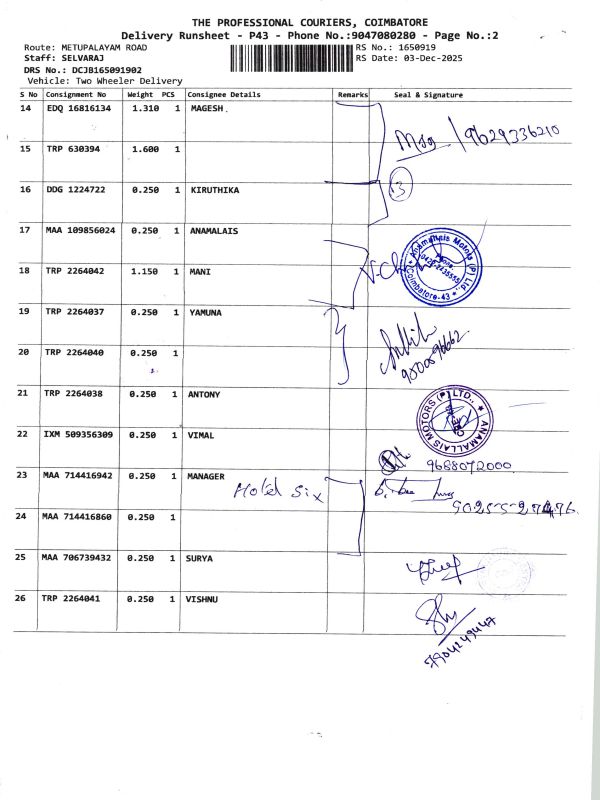 THE PROFESSIONAL COURIERS, COIMBATORE
Delivery Runsheet - P43 - Phone No.:9047080280 - Page No.:2
Route: METUPALAYAM ROAD RS No.: 1650919
Staff: SELVARAJ RS Date: 03-Dec-2025
DRS No.: DCJB165091902
Vehicle: Two Wheeler Delivery
S No Consignment No Weight PCS Consignee Details Remarks Seal & Signature
14 EDQ 16816134 1.310 1 MAGESH.
9629336210
15 TRP 630394 1.600 1
16 DDG 1224722 0.250 1 KIRUTHIKA
3
17 MAA 109856024 0.250 1 ANAMALAIS
Anamallais Motors (P) Ltd
Coimbatore-43
18 TRP 2264042 1.150 1 MANI
19 TRP 2264037 0.250 1 YAMUNA
20 TRP 2264040 0.250 1
21 TRP 2264038 0.250 1 ANTONY
ANAMALLAIS MOTORS (P) LTD.,
22 IXM 509356309 0.250 1 VIMAL
9688072000
23 MAA 714416942 0.250 1 MANAGER
Hotel Six
24 MAA 714416860 0.250 1
25 MAA 706739432 0.250 1 SURYA
26 TRP 2264041 0.250 1 VISHNU
7904249447